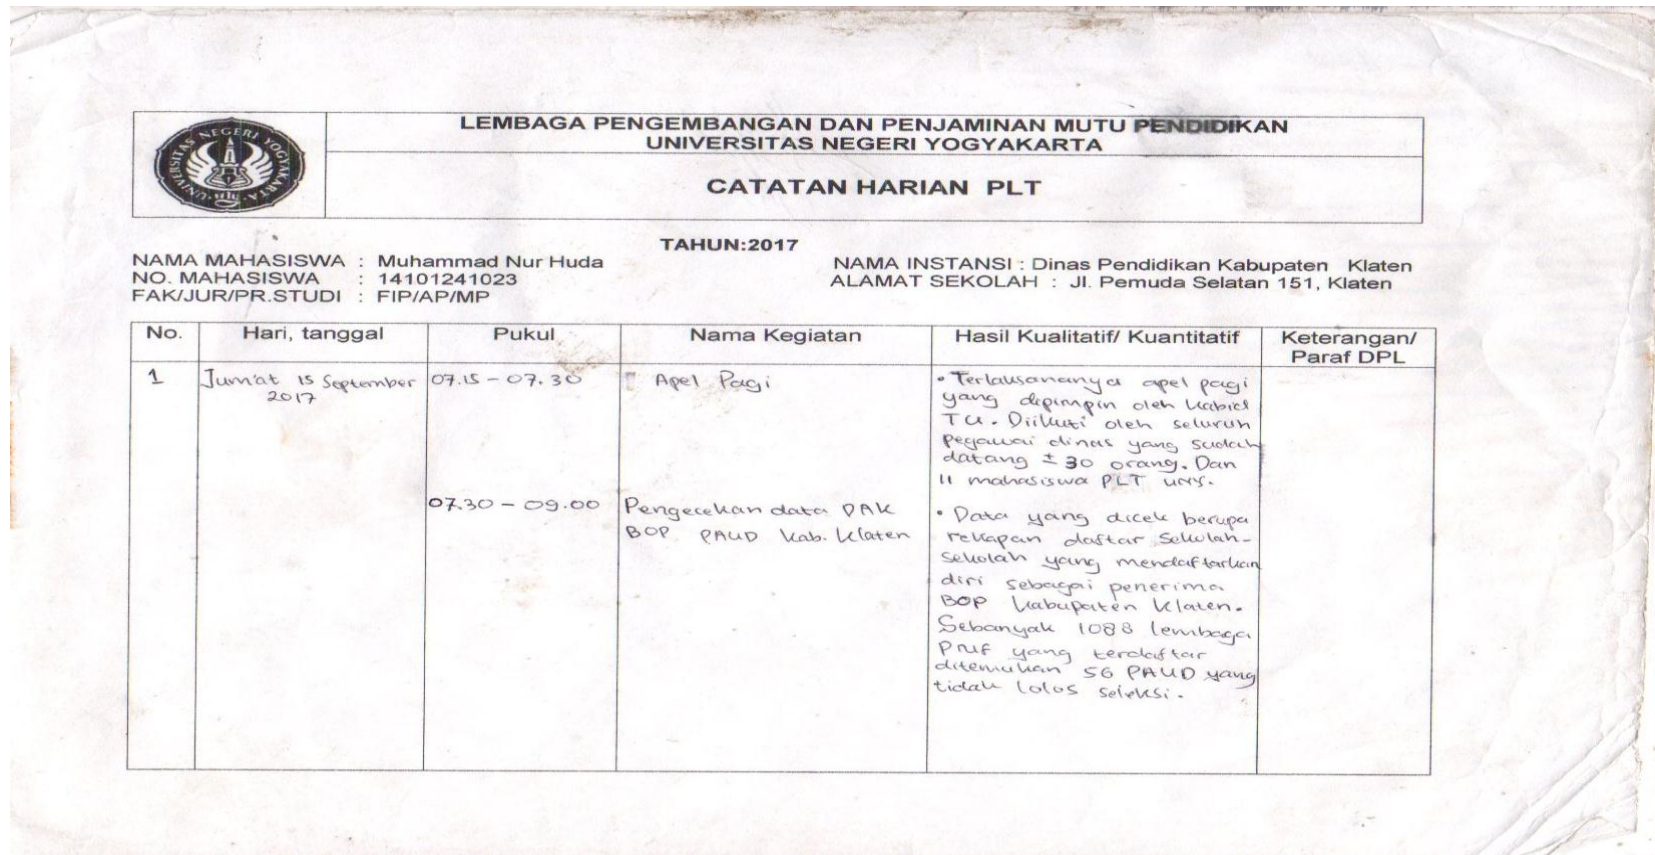 LEMBAGA PENGEMBANGAN DAN PENJAMINAN MUTU PENDIDIKAN
UNIVERSITAS NEGERI YOGYAKARTA
CATATAN HARIAN PLT
UNIVERSITAS NEGERI YOGYAKARTA
TAHUN:2017
NAMA MAHASISWA : Muhammad Nur Huda
NO. MAHASISWA : 14101241023
FAK/JUR/PR.STUDI : FIP/AP/MP
NAMA INSTANSI : Dinas Pendidikan Kabupaten Klaten
ALAMAT SEKOLAH : Jl. Pemuda Selatan 151, Klaten
No. Hari, tanggal Pukul Nama Kegiatan Hasil Kualitatif/ Kuantitatif Keterangan/
Paraf DPL
1 Jum'at 15 September
2017
07.15 - 07.30 Apel Pagi
• Terlaksananya apel pagi
yang dipimpin oleh kabid
TU. Diikuti oleh seluruh
pegawai dinas yang sudah
datang ± 30 orang. Dan
11 mahasiswa PLT UNY.
07.30 - 09.00 Pengecekan data DAK
BOP PAUD Kab. Klaten
• Data yang dicek berupa
rekapan daftar sekolah-
sekolah yang mendaftarkan
diri sebagai penerima
BOP Kabupaten Klaten.
Sebanyak 1088 lembaga
yang terdaftar
ditemukan 56 PAUD yang
tidak lolos seleksi.